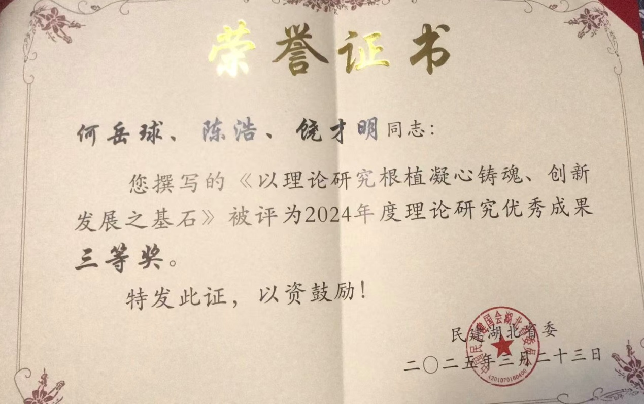 荣誉证书
何岳球、陈浩、饶才明同志：
您撰写的《以理论研究根植凝心铸魂、创新
发展之基石》被评为2024年度理论研究优秀成果
三等奖。
特发此证，以资鼓励！
民建湖北省委
二〇二五年三月二十三日